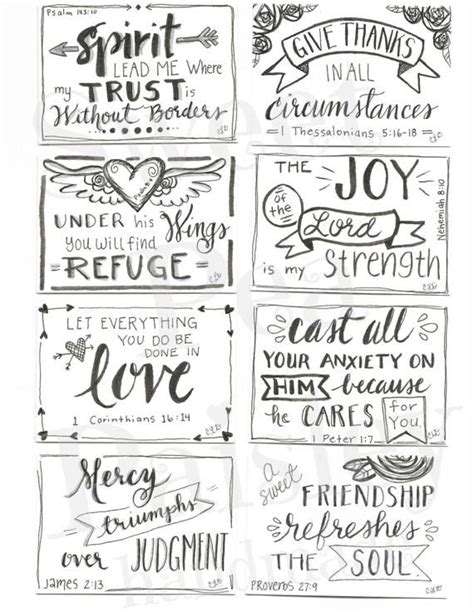 Psalm 143:10
Spirit
LEAD ME Where
my TRUST is
Without Borders
GIVE THANKS
IN ALL
circumstances
1 Thessalonians 5:16-18
UNDER his Wings
YOU will find
REFUGE
THE JOY
of the
Lord
is my Strength
Nehemiah 8:10
LET EVERYTHING
YOU DO BE
DONE IN
love
1 Corinthians 16:14
cast all
YOUR ANXIETY ON
HIM because
he CARES for
YOU.
1 Peter 1:7
Mercy
triumphs
over JUDGMENT
James 2:13
a
sweet
FRIENDSHIP
refreshes
THE SOUL.
Proverbs 27:9
Sweet
Pea
Daisley
handmade